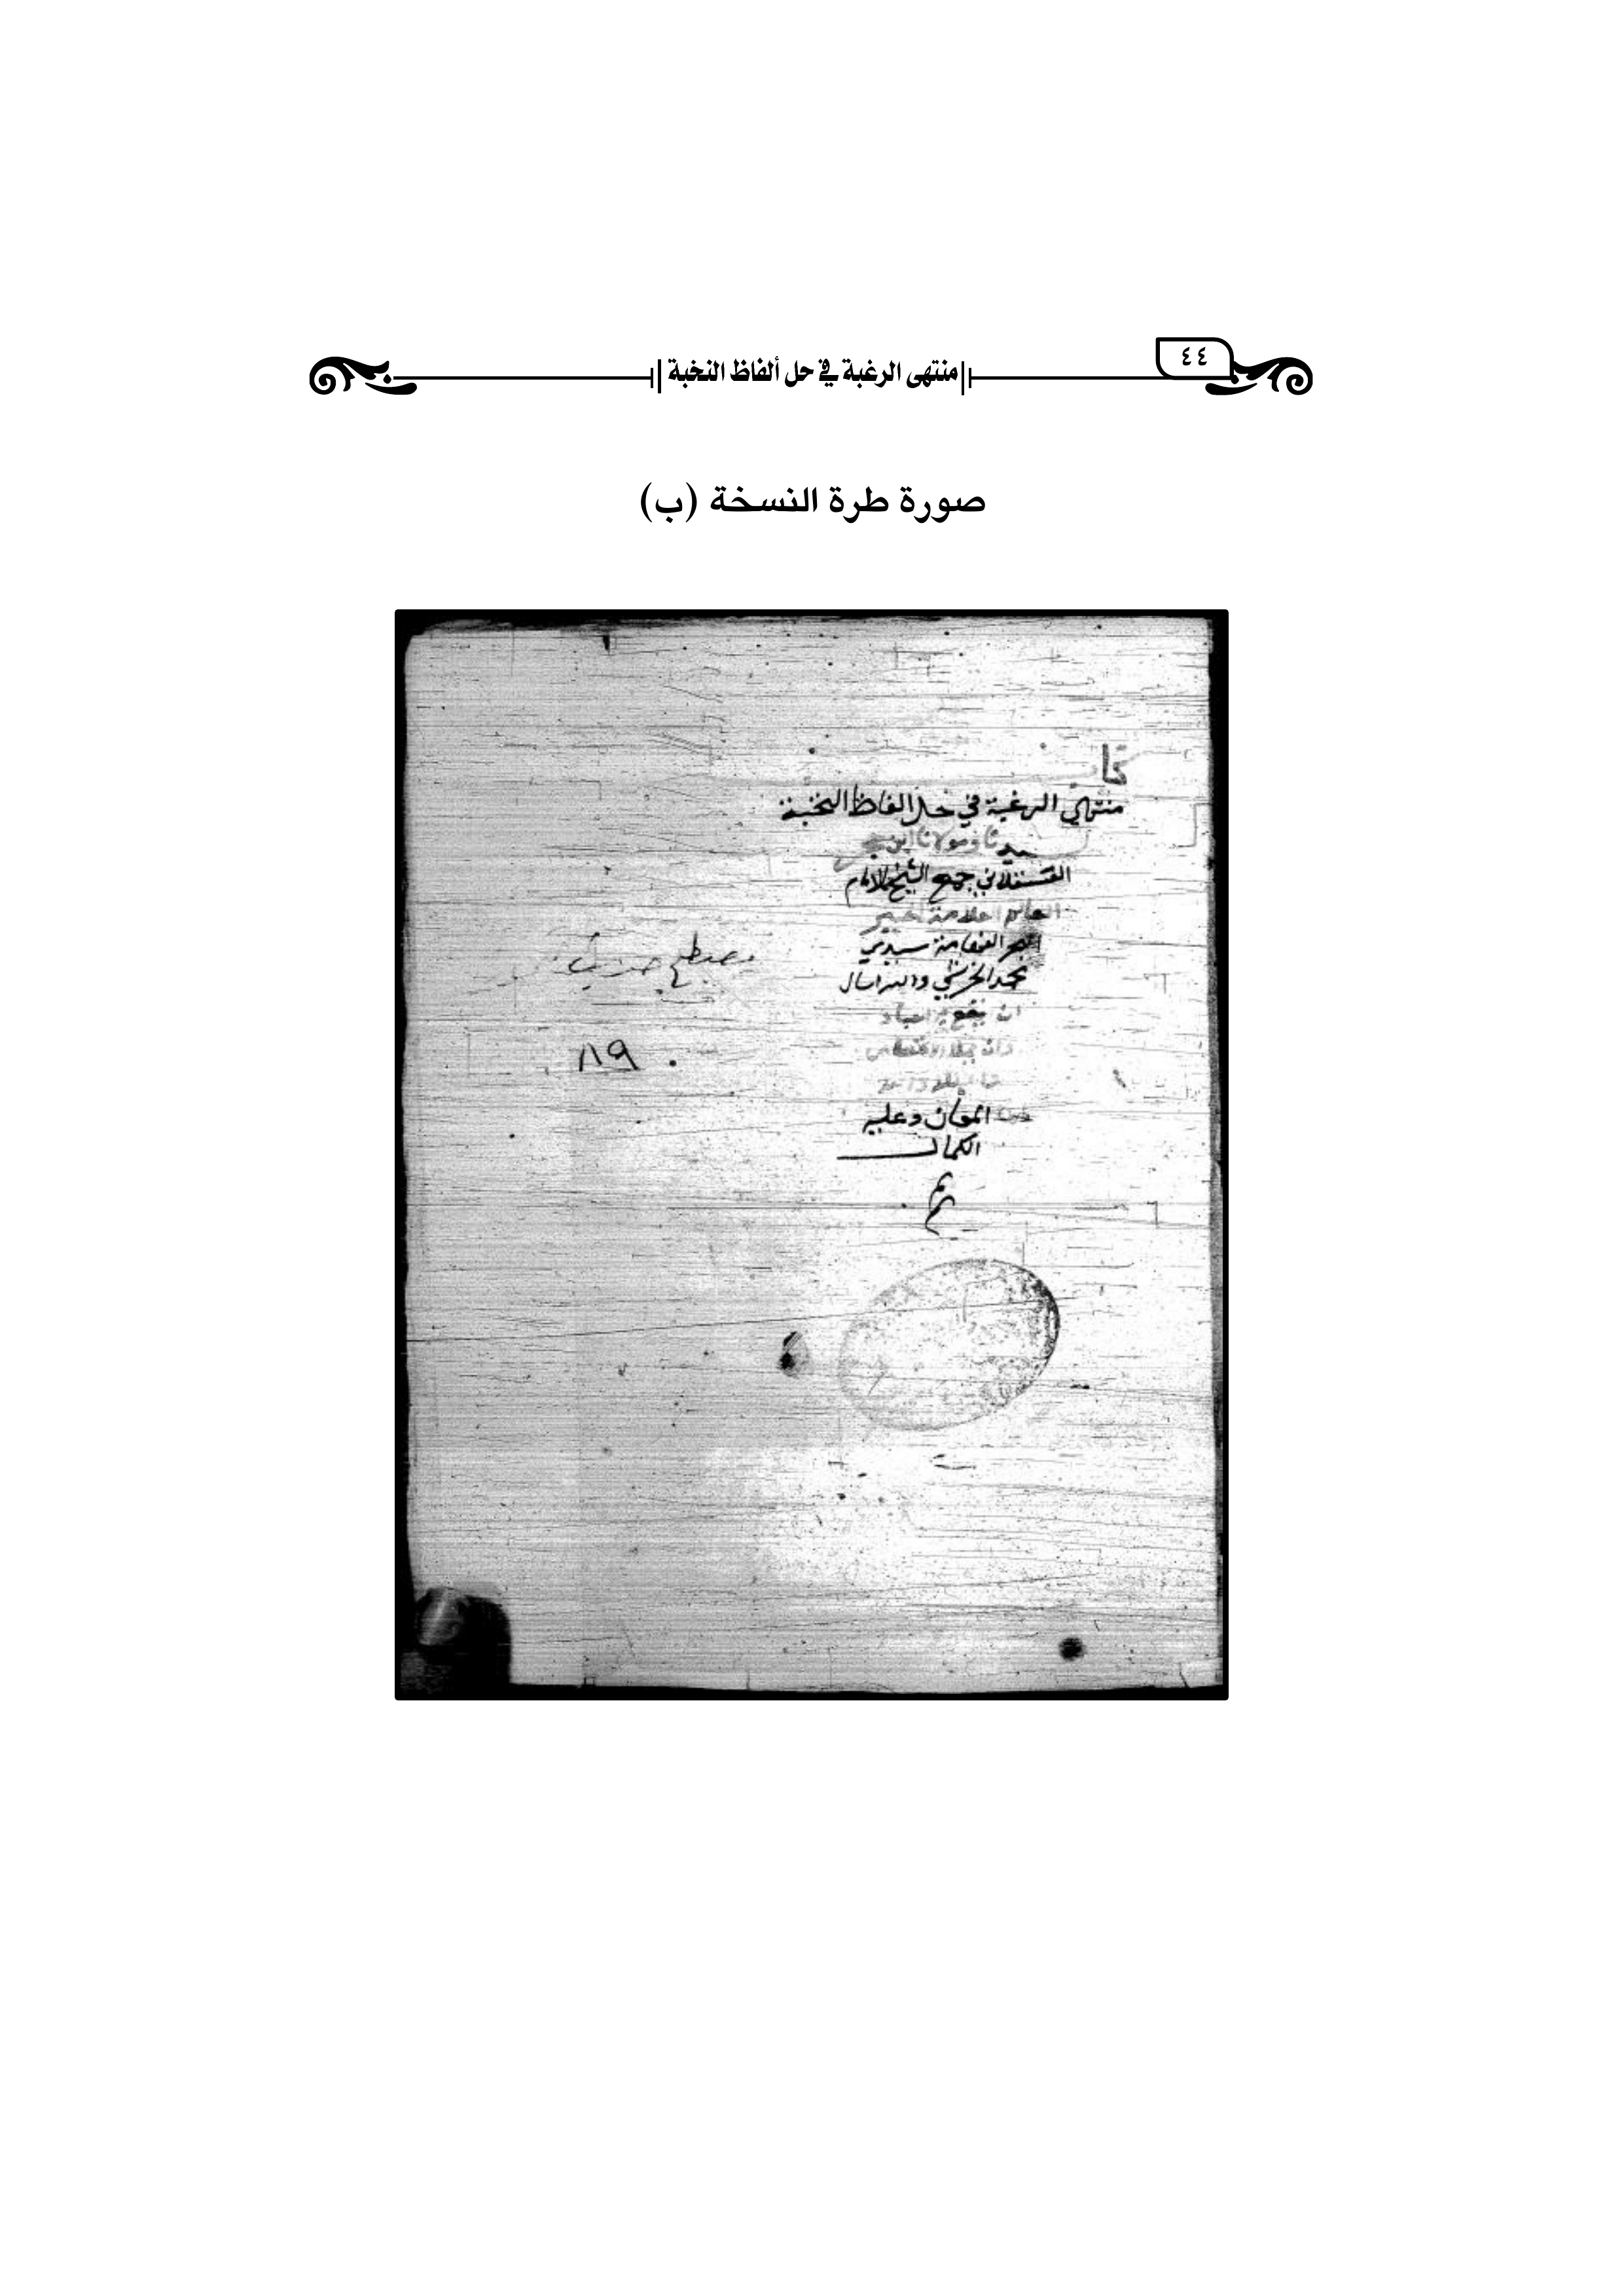 ٤٤
منتهى الرغبة في حل ألفاظ النخبة
صورة طرة النسخة (ب)
كتا
منتهي الرغبة في حل الفاظ النخبة
سيدنا ومولانا ابن حجر
العسقلاني جمع الشيخ الامام
العالم العلامة الحبر
البحر الفهامة سيدي
محمد الخرشي والله اسال
ان ينفع به العباد
المنان وعليه
الكمال
مصطلح حديث
١٨٩